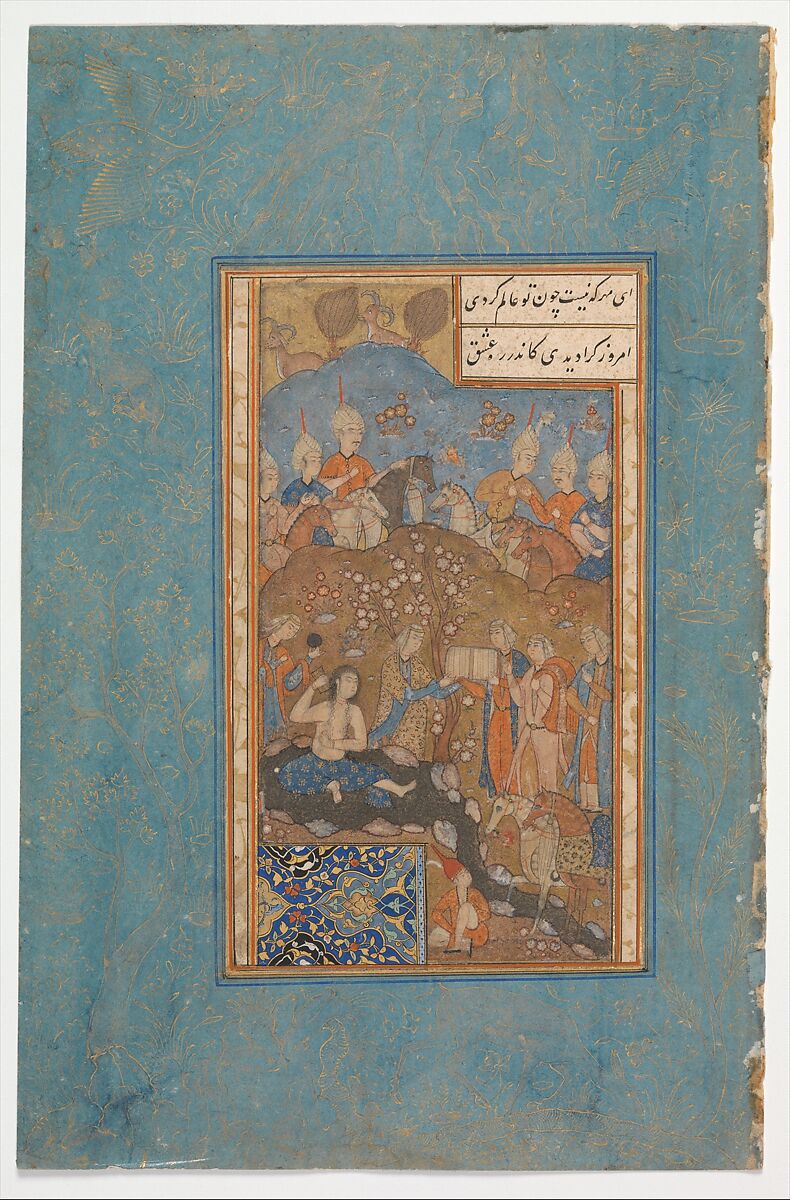 ای مهر که نیست چون تو عالم گردی
امروز کرا دیدی کاندر ره عشق